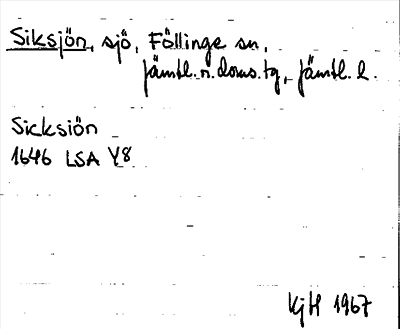 Siksjön, sjö, Föllinge sn,
Jämtl. n. doms. tg, Jämtl. l.
Sicksiön
1646 LSA Y8
KjH 1967